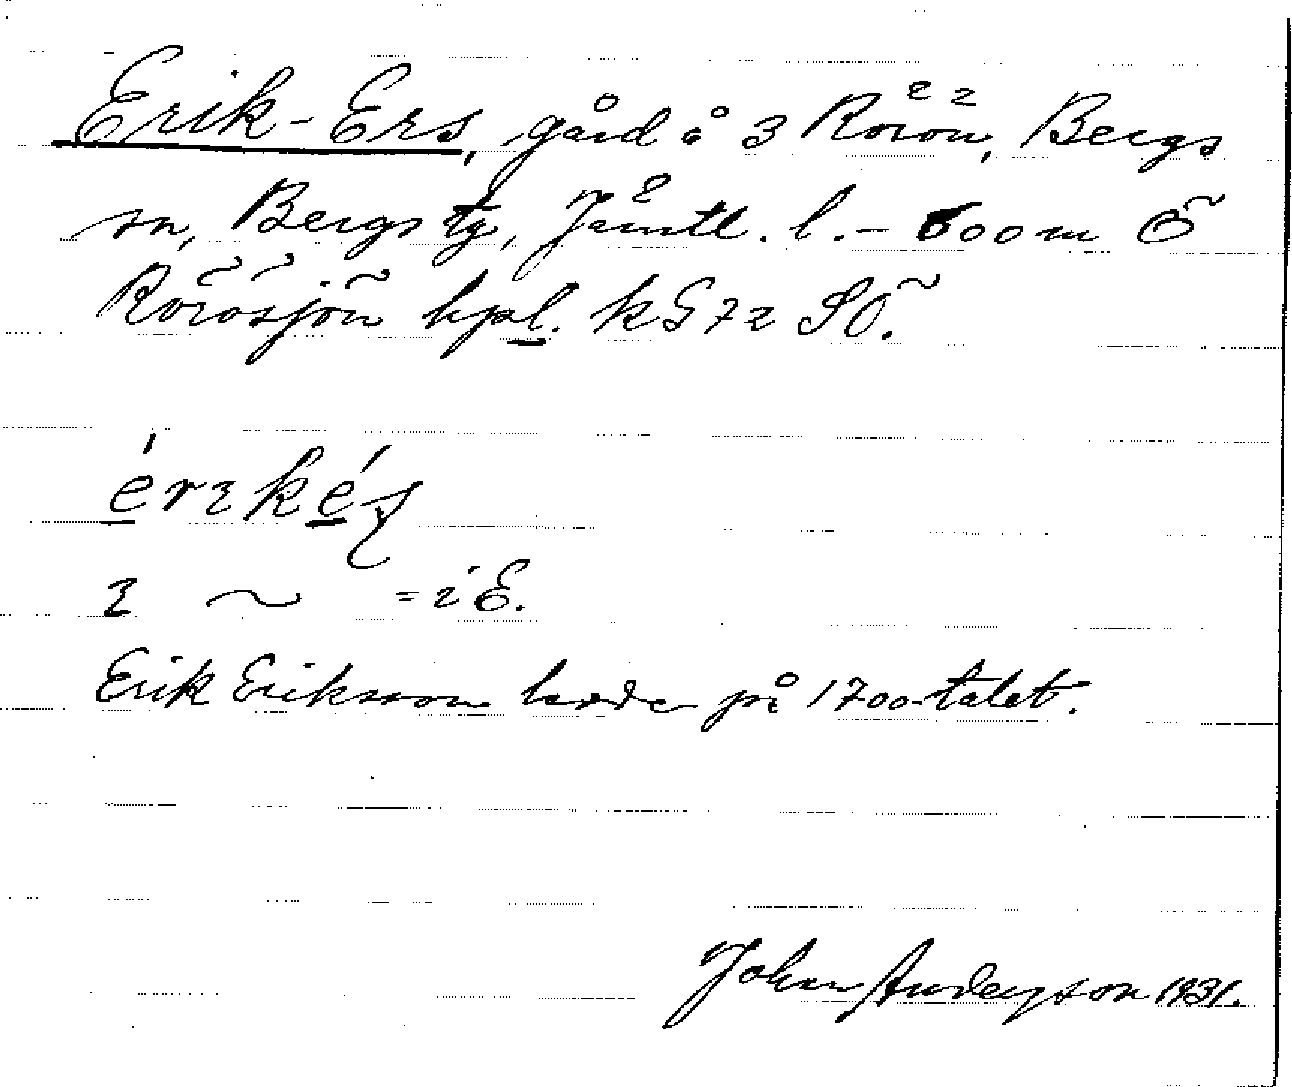 Erik-Ers, gård å 3 Rörön, Bergs
sn, Bergs tg, Jämtl. l. – 600 m Ö
Rörösjön hpl. kG72 SÖ.
= i E.
Erik Eriksson levde på 1700-talet.
Johan Anderson 1931.